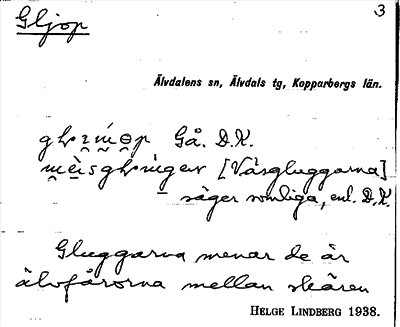 Gljop 3
Älvdalens sn, Älvdals tg, Kopparbergs län.
Gå. D.K.
[Våsgluggarna]
säger somliga, enl. D.K.
Gluggarna menar de är
älvfårorna mellan skären
HELGE LINDBERG 1938.